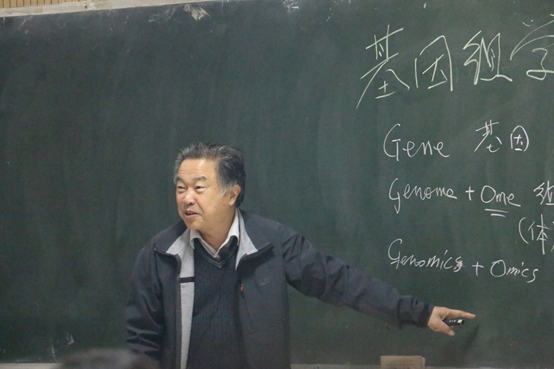 基因组学
Gene 基因
Genome + Ome 组
(体
Genomics + Omics